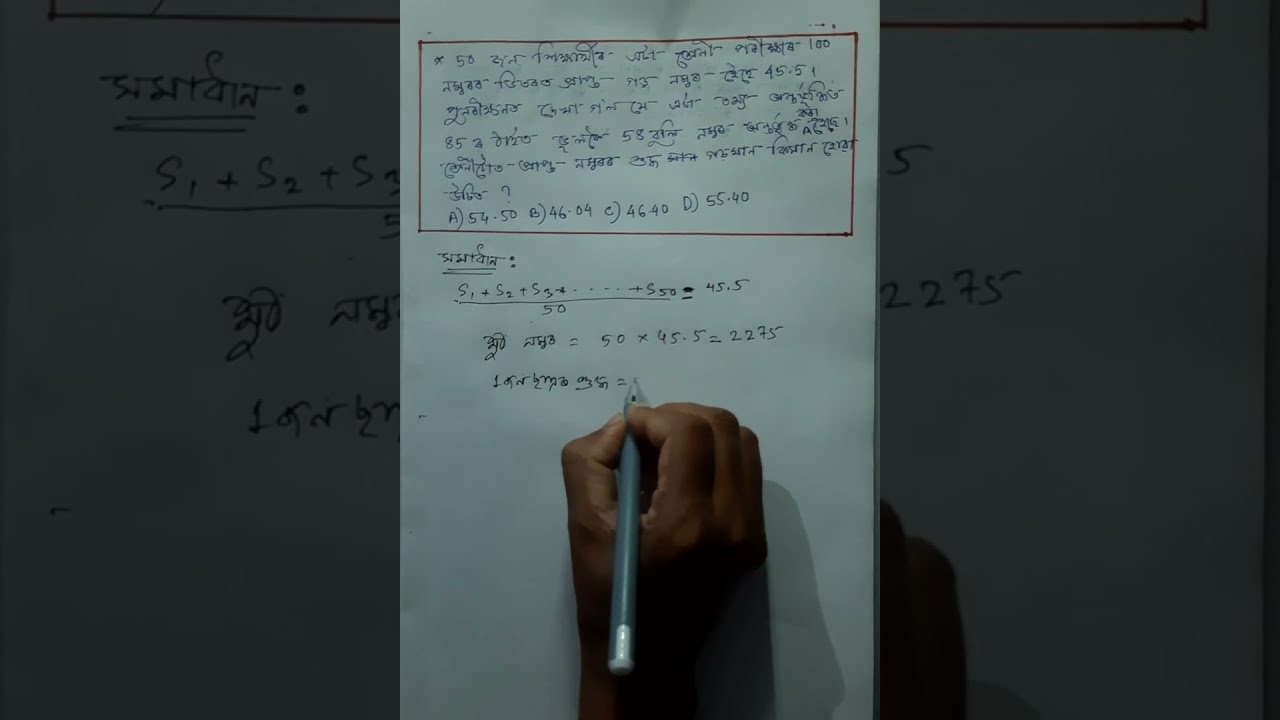 * 50 জন শিক্ষাৰ্থীৰ এটা শ্ৰেণী পৰীক্ষাৰ 100
নম্বৰৰ ভিতৰত প্ৰাপ্ত গড় নম্বৰ হৈছে 45.5।
পুনৰীক্ষনত দেখা গল যে এটা তথ্য
85 ৰ ঠাইত ভুলতে 58 বুলি নম্বৰ অন্তৰ্ভুক্ত কৰা হৈছে।
শ্ৰেণীটোত প্ৰাপ্ত নম্বৰৰ শুদ্ধ গড়মান কিমান হোৱা
উচিত ?
A) 54.50 B) 46.04 C) 46.40 D) 55.40
সমাধান :
S1 + S2 + S3 + ..... + S50 = 45.5
50
নম্বৰ = 50 × 45.5 = 2275
1 জন ছাত্ৰৰ শুদ্ধ =